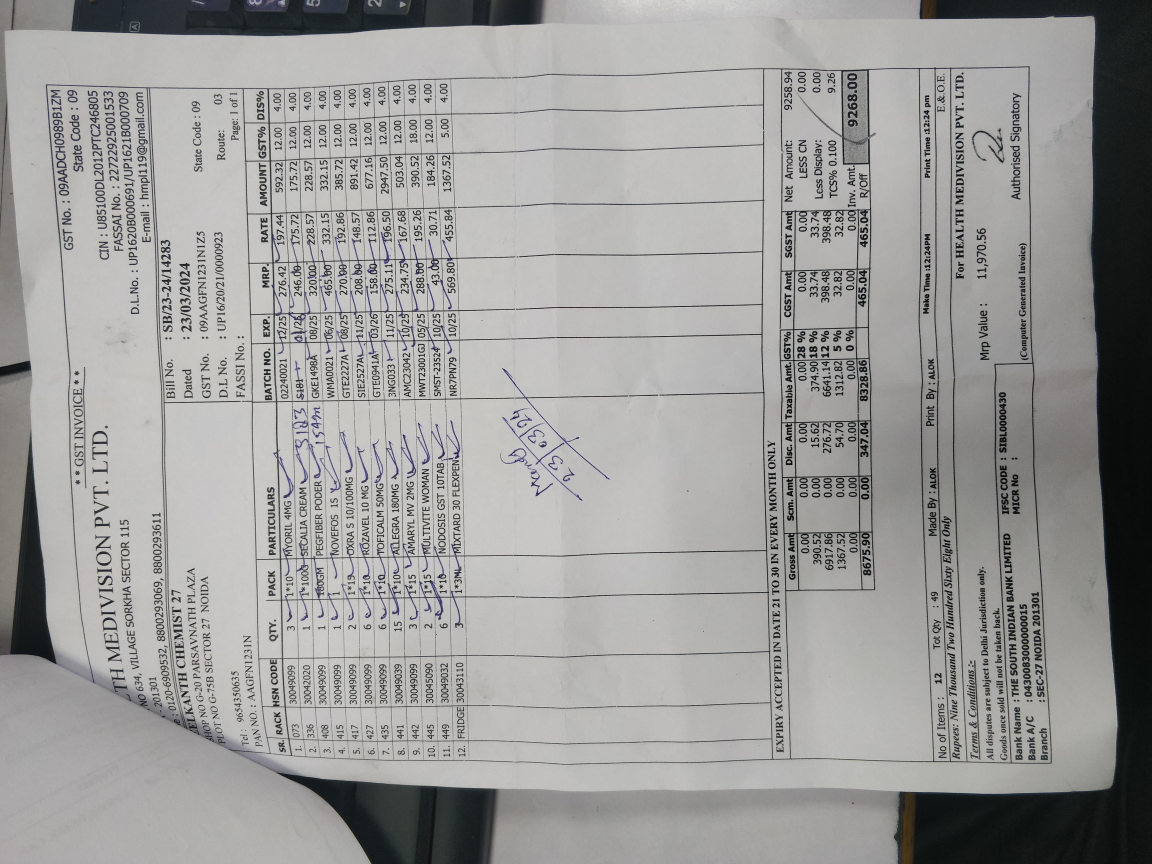 ** GST INVOICE **
GST No. : 09AADCH0989B1ZM
State Code : 09
TH MEDIVISION PVT. LTD.
CIN : U85100DL2012PTC246805
NO 634, VILLAGE SORKHA SECTOR 115
FASSAI No. : 22722925001533
- 201301
D.L.No. : UP1620B000691/UP1621B000709
: 0120-6909532, 8800293069, 8800293611
E-mail : hmpl119@gmail.com
ELKANTH CHEMIST 27
Bill No. : SB/23-24/14283
SHOP NO G-20 PARSAVNATH PLAZA
Dated : 23/03/2024
PLOT NO G-75B SECTOR 27 NOIDA
GST No. : 09AAGFN1231N1Z5 State Code : 09
D.L No. : UP16/20/21/0000923 Route: 03
Tel : 9654350635
FASSI No. : Page: 1 of 1
PAN NO. : AAGFN1231N
SR. RACK HSN CODE QTY. PACK PARTICULARS BATCH NO. EXP. MRP. RATE AMOUNT GST% DIS%
1. 073 30049099 3 1*10 MYORIL 4MG 02240021 12/25 276.42 197.44 592.32 12.00 4.00
2. 336 30042020 1 1*100G SECALIA CREAM 3123 01/26 246.00 175.72 175.72 12.00 4.00
3. 408 30049099 1 180GM PEGFIBER PODER GKE1498A 08/25 320.00 228.57 228.57 12.00 4.00
4. 415 30049099 1 1 NOVEFOS 1S WMA0021 06/25 465.00 332.15 332.15 12.00 4.00
5. 417 30049099 2 1*15 OXRA S 10/100MG GTE2227A 08/25 270.00 192.86 385.72 12.00 4.00
6. 427 30049099 6 1*10 ROZAVEL 10 MG SIE2527A 11/25 208.00 148.57 891.42 12.00 4.00
7. 435 30049099 6 1*10 TOFICALM 50MG GTE0941A 03/26 158.00 112.86 677.16 12.00 4.00
8. 441 30049039 15 1*10 ALLEGRA 180MG 3NG031 11/25 275.11 196.50 2947.50 12.00 4.00
9. 442 30049099 3 1*15 AMARYL MV 2MG AMC23042 10/25 234.75 167.68 503.04 12.00 4.00
10. 445 30045090 2 1*15 MULTIVITE WOMAN MWT23001GJ 05/25 288.00 195.26 390.52 18.00 4.00
11. 449 30049032 6 1*10 NODOSIS GST 10TAB SMST-23524 10/25 43.00 30.71 184.26 12.00 4.00
12. FRIDGE 30043110 3 1*3ML MIXTARD 30 FLEXPEN NR7PN79 10/25 569.80 455.84 1367.52 5.00 4.00
23/03/24
EXPIRY ACCEPTED IN DATE 21 TO 30 IN EVERY MONTH ONLY
Gross Amt Scm. Amt Disc. Amt Taxable Amt. GST% CGST Amt SGST Amt Net Amount: 9258.94
0.00 0.00 0.00 0.00 28 % 0.00 0.00 LESS CN 0.00
390.52 0.00 15.62 374.90 18 % 33.74 33.74 Less Display: 0.00
6917.86 0.00 276.72 6641.14 12 % 398.48 398.48 TCS% 0.100 9.26
1367.52 0.00 54.70 1312.82 5 % 32.82 32.82
0.00 0.00 0.00 0.00 0 % 0.00 0.00 Inv. Amt. 9268.00
8675.90 0.00 347.04 8328.86 465.04 465.04 R/Off
No of Items : 12 Tot Qty : 49 Made By : ALOK Print By : ALOK Make Time :12:24PM Print Time :12:24 pm E.& O.E.
Rupees: Nine Thousand Two Hundred Sixty Eight Only
For HEALTH MEDIVISION PVT. LTD.
Terms & Conditions :-
All disputes are subject to Delhi Jurisdiction only.
Mrp Value : 11,970.56
Goods once sold will not be taken back.
Bank Name : THE SOUTH INDIAN BANK LIMITED IFSC CODE : SIBL0000430
Bank A/C : 0430083000000015 MICR No :
Authorised Signatory
Branch : SEC-27 NOIDA 201301
(Computer Generated Invoice)